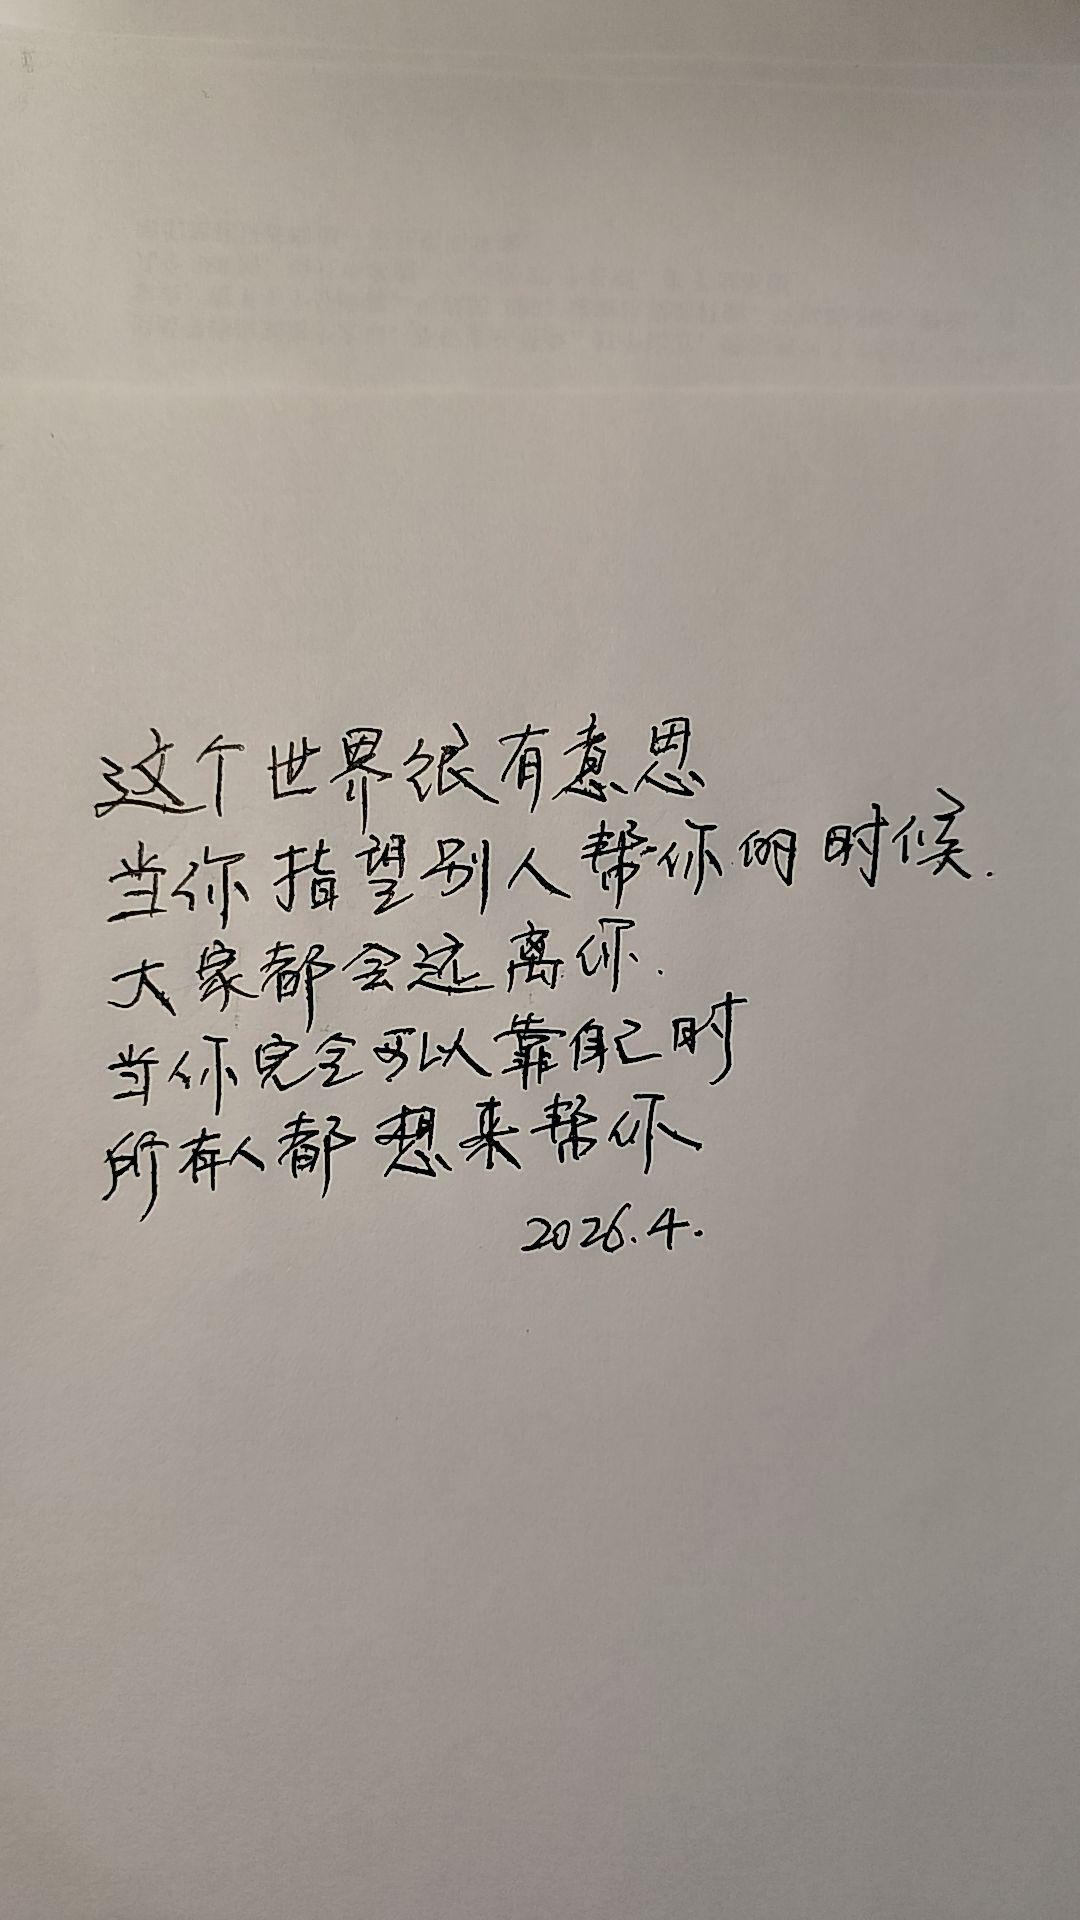 这个世界很有意思
当你指望别人帮你的时候.
大家都会远离你.
当你完全可以靠自己时
所有人都想来帮你
2026.4.